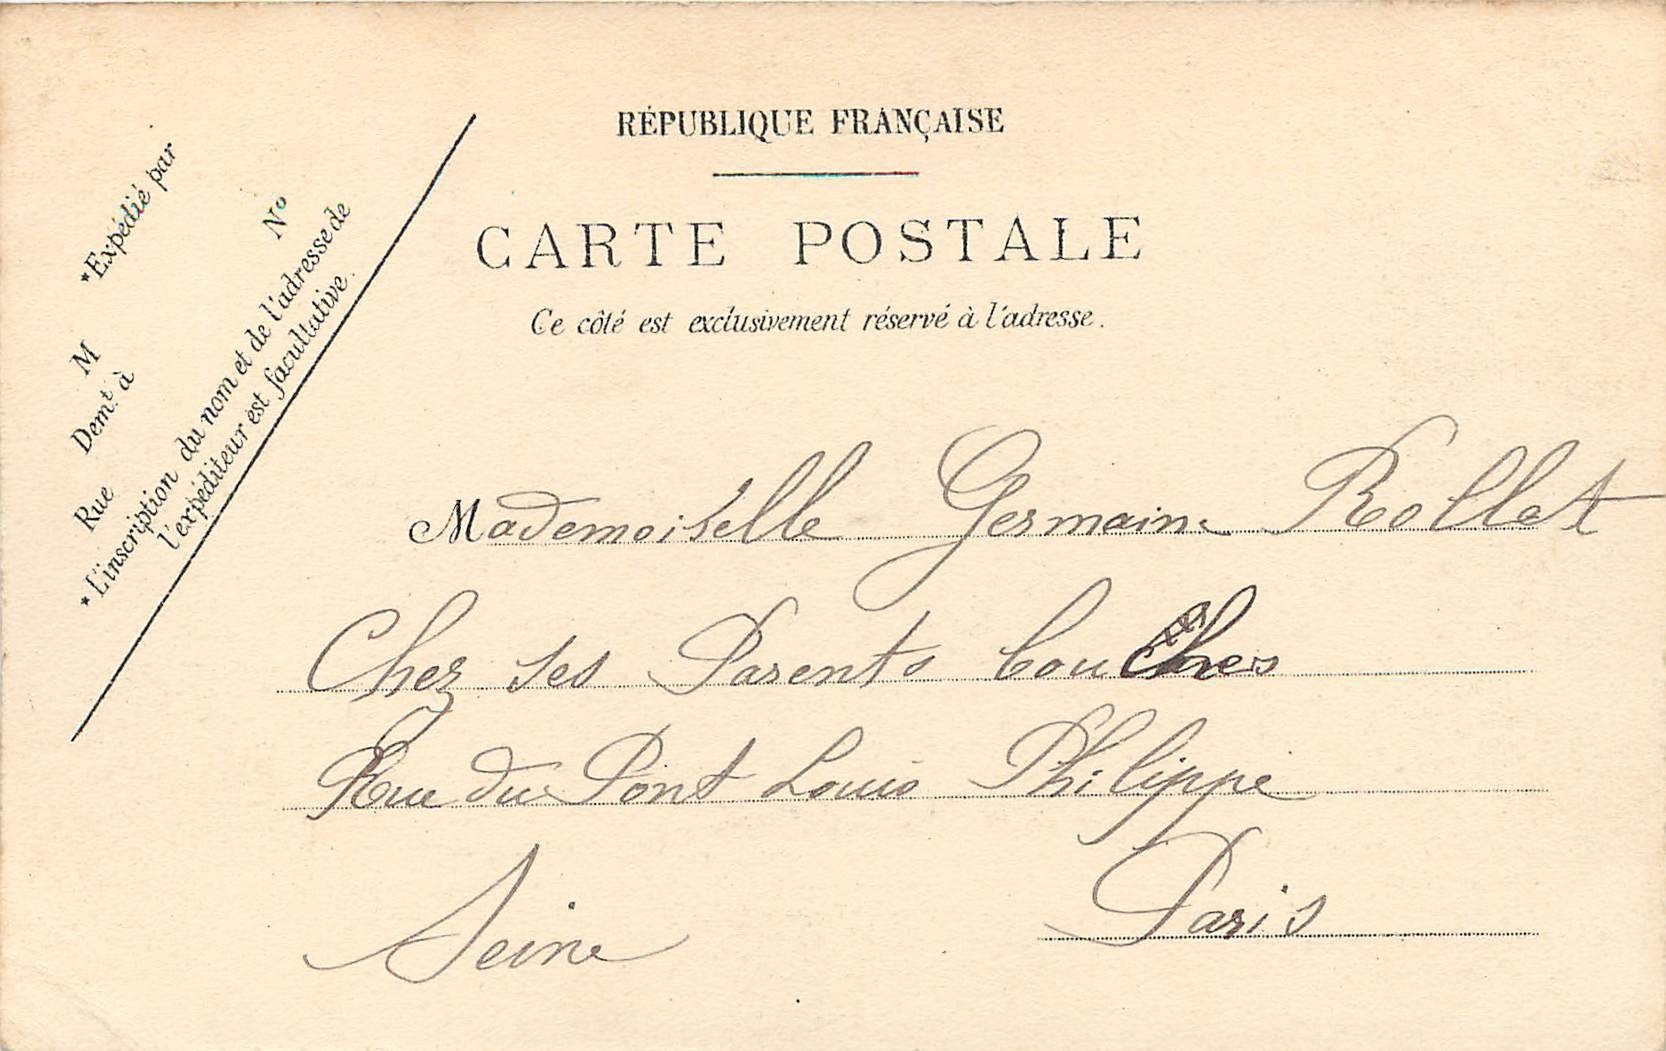 RÉPUBLIQUE FRANÇAISE
CARTE POSTALE
Ce côté est exclusivement réservé à l'adresse.
*Expédié par
M
Demt. à
Rue
No
*L'inscription du nom et de l'adresse de
l'expéditeur est facultative.
Mademoiselle Germaine Rollet
Chez ses Parents
Rue du Pont Louis Philippe
Seine Paris